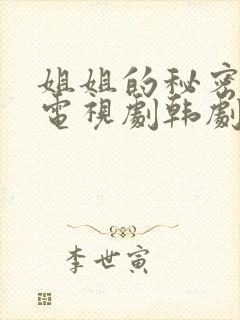 姐姐的秘密
電視劇韩劇
李世寅